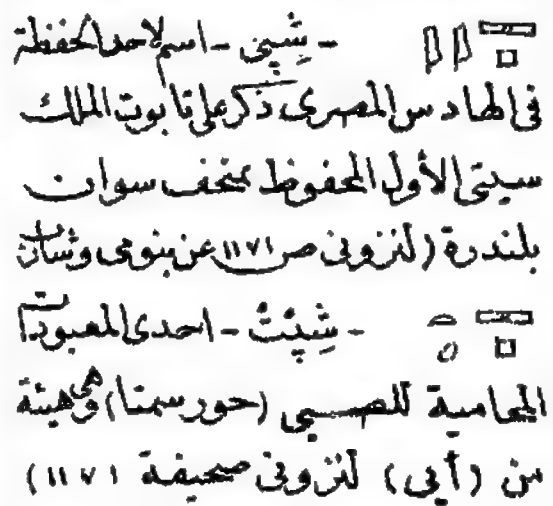 - شِپِى - اسم لاحد الحفظة
فى الهادس المصرى ذكر على تابوت الملك
سيتى الأول المحفوظ بمتحف سوان
بلندرة (لنزونى ص ١١٧١ عن بنومى وشاب
- شِپِتْ - احدى المعبودات
المحامية للصبى (حور سمتا) وهى هيئة
من (أبى) لنزونى صحيفة ١١٧١)